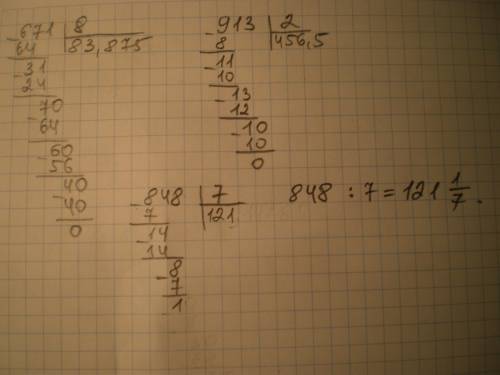 - 671 | 8
64 | 83,875
- 31
24
- 70
64
- 60
56
- 40
40
0
- 913 | 2
8 | 456,5
- 11
10
- 13
12
- 10
10
0
- 848 | 7
7 | 121
- 14
14
- 8
7
1
848 : 7 = 121 1/7.